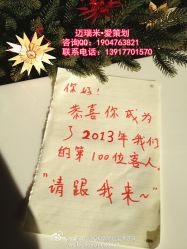 迈瑞米•爱策划
咨询QQ：1904763821
联系电话：13917701570
你好！
恭喜你成为
了2013年我们
的第100位客人。
"请跟我来~"